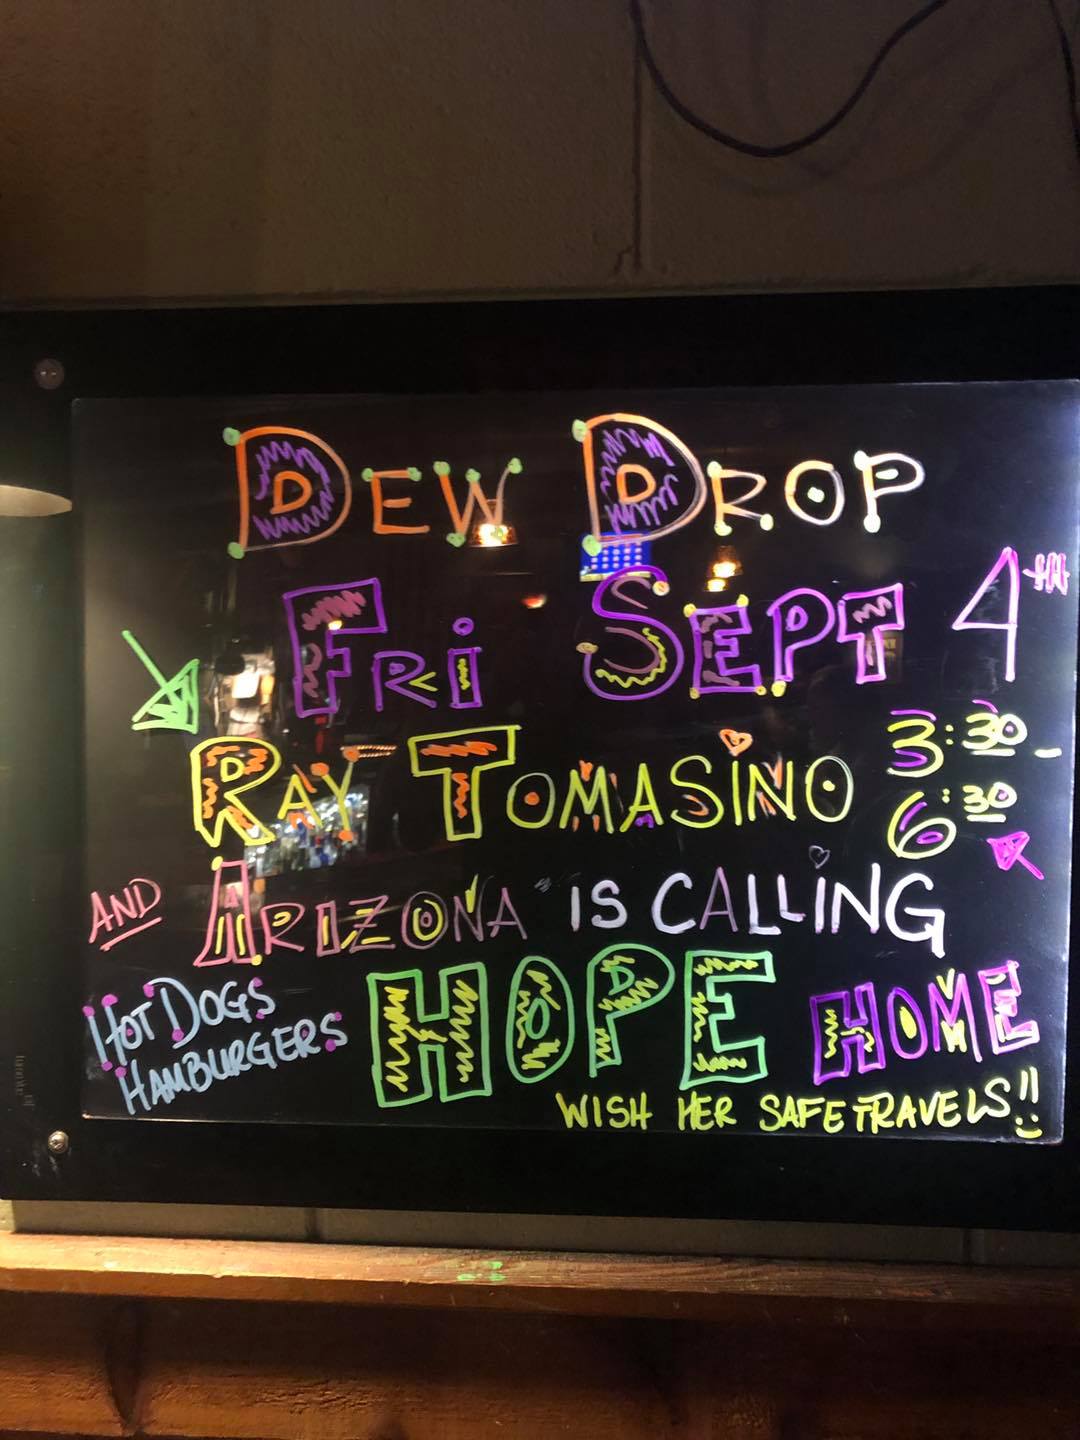 DEW DROP
FRI SEPT 4TH
RAY TOMASINO 3:30 -
6:30
AND ARIZONA IS CALLING
HOT DOGS
HAMBURGERS
HOPE HOME
WISH HER SAFE TRAVELS!!